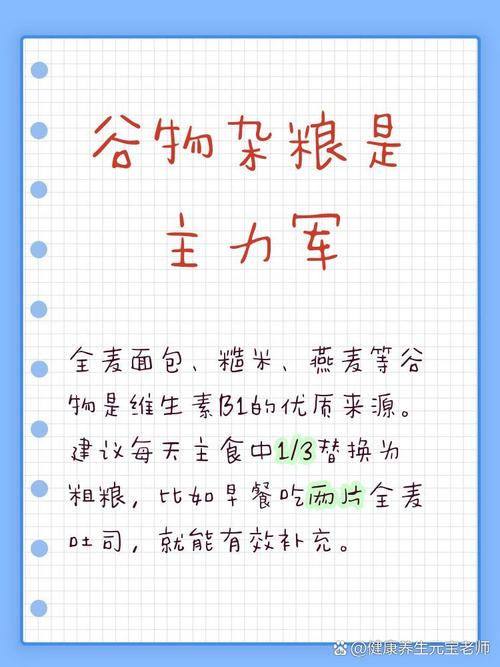 谷物杂粮是
主力军
全麦面包、糙米、燕麦等谷
物是维生素B1的优质来源。
建议每天主食中1/3替换为
粗粮，比如早餐吃两片全麦
吐司，就能有效补充。
@健康养生元宝老师